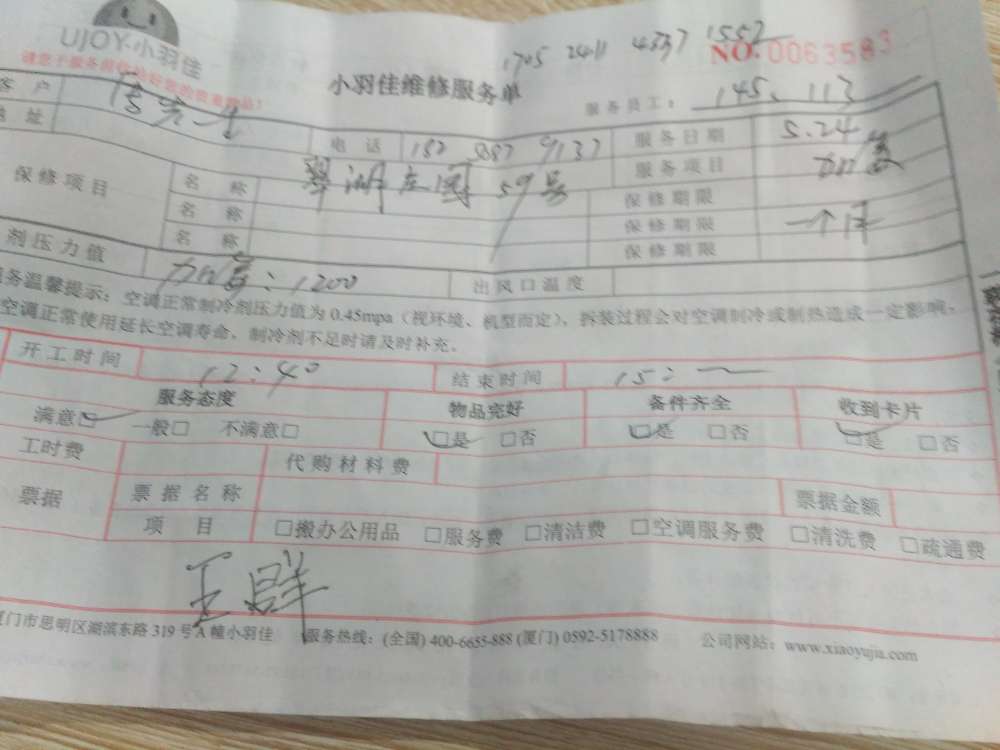 UJOY·小羽佳
1705 2411 4337 1557
NO.0063583
小羽佳维修服务单
服务员工: 145、113
客户
地址
电话 182 5887 9137
服务日期 5.24
保修项目
名称 翠湖庄园59号
服务项目 加氟
保修期限
名称
保修期限 一个月
名称
保修期限
剂压力值 加氟:1200
出风口温度
服务温馨提示:空调正常制冷剂压力值为0.45mpa(视环境、机型而定),拆装过程会对空调制冷或制热造成一定影响,
空调正常使用延长空调寿命,制冷剂不足时请及时补充。
开工时间 12:40
结束时间 15:
服务态度 物品完好 备件齐全 收到卡片
满意□ 一般□ 不满意□ □是 □否 □是 □否 □是 □否
工时费 代购材料费
票据 票据名称 票据金额
项目 □搬办公用品 □服务费 □清洁费 □空调服务费 □清洗费 □疏通费
王群
厦门市思明区湖滨东路319号A幢小羽佳 服务热线:(全国)400-6655-888(厦门)0592-5178888 公司网站:www.xiaoyujia.com